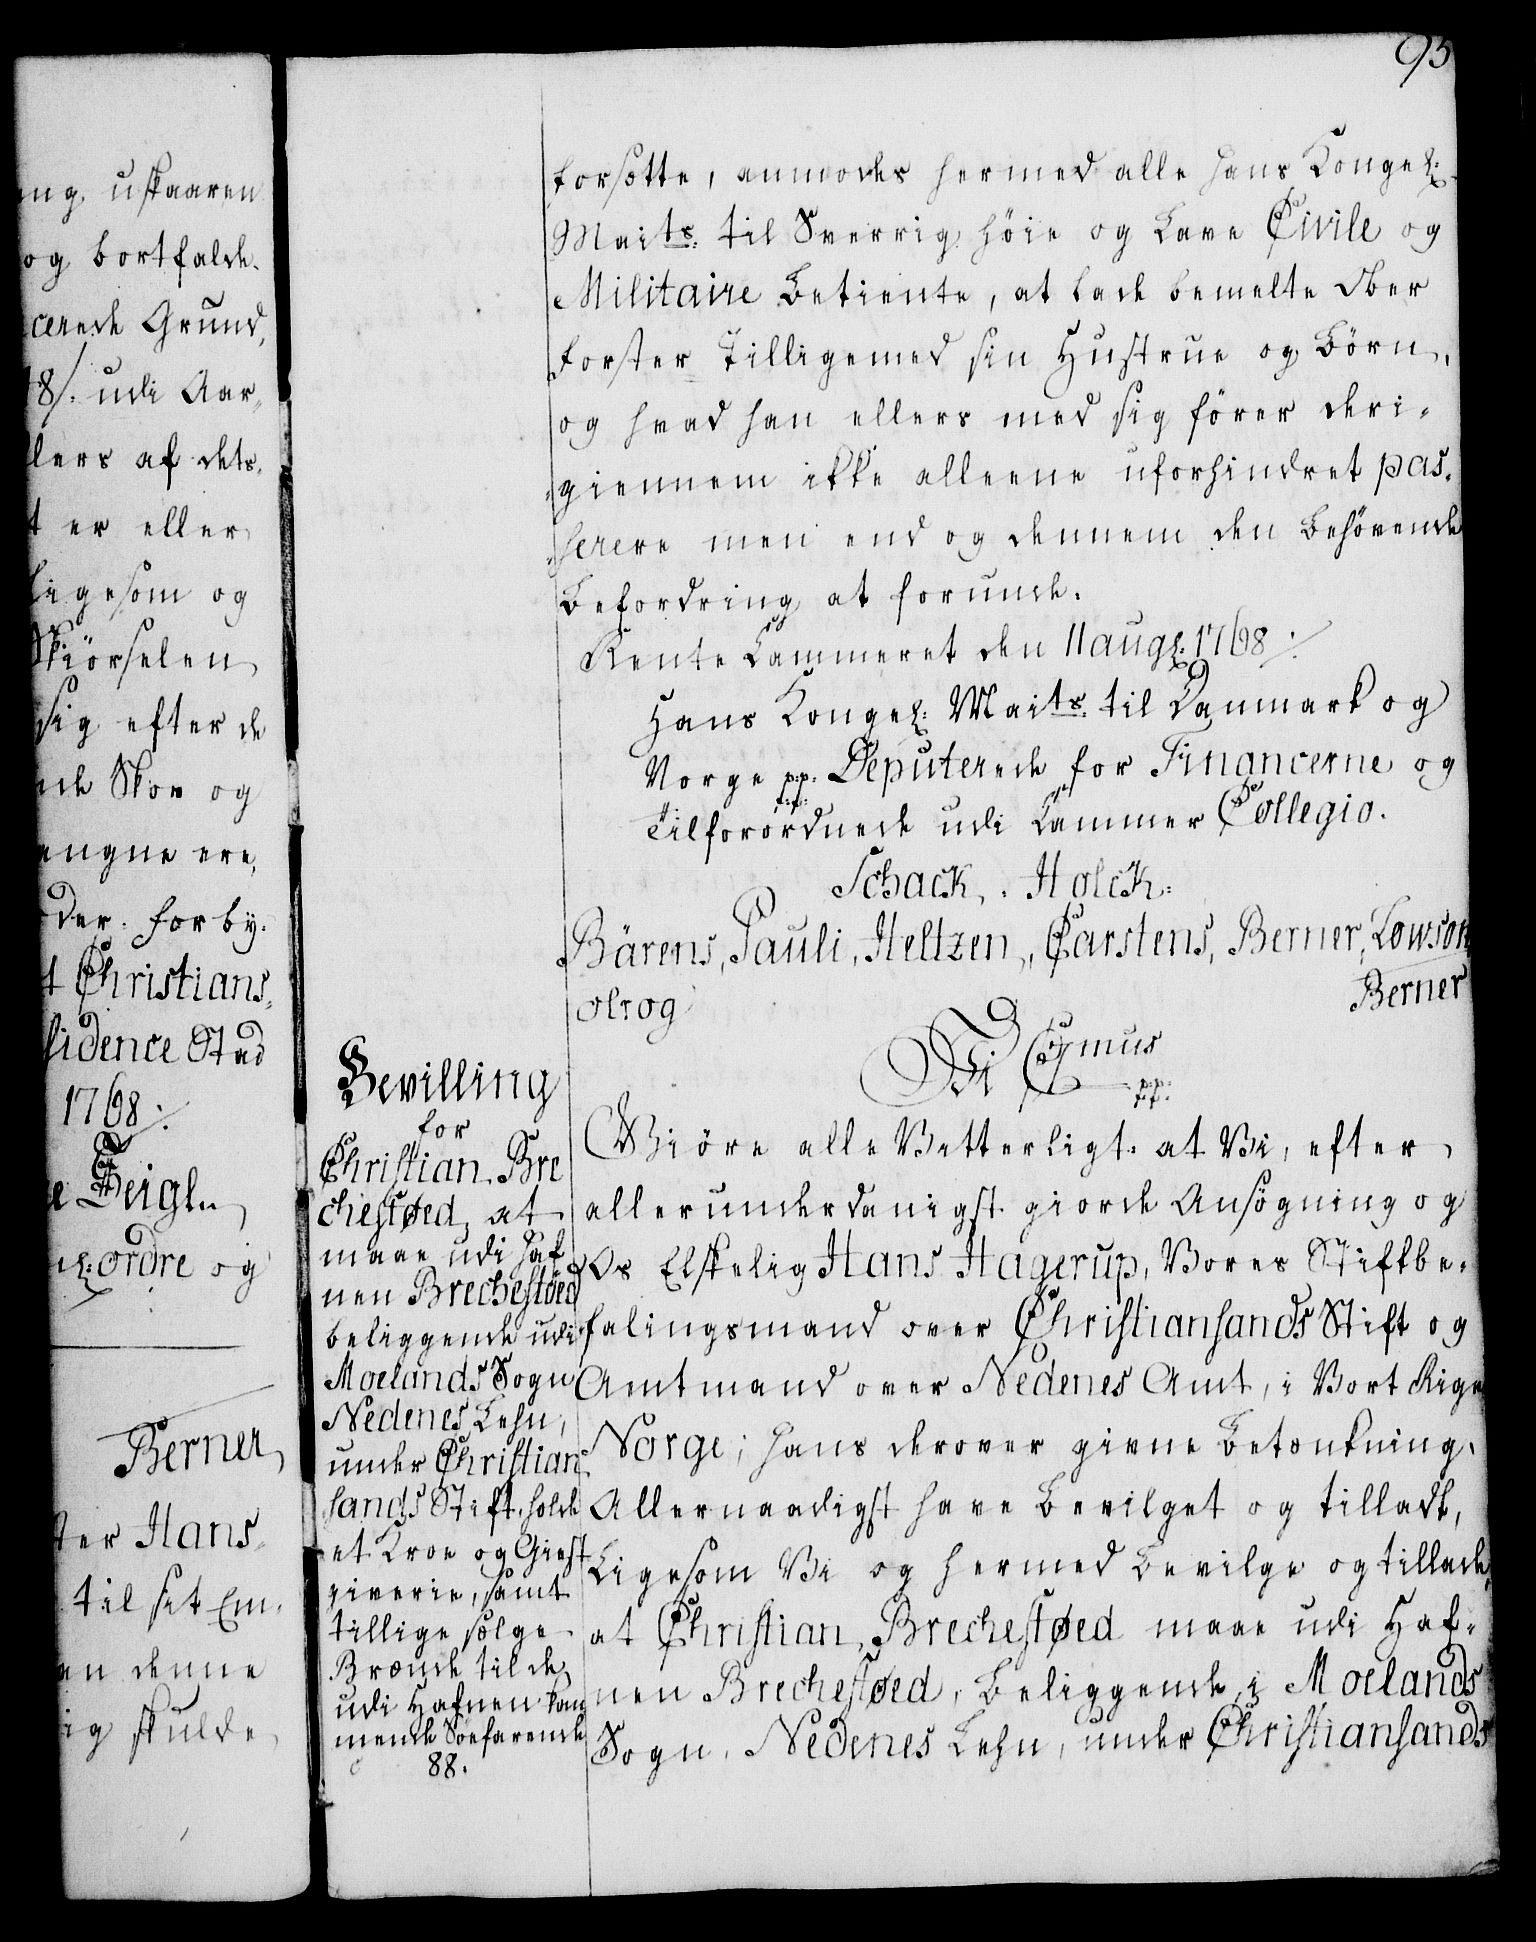 95
ng uskaaren
og bortfalde.
cerede Grund,
18/. udi Aar,
lers af dets,
t er eller
Ligesom og
Skiörselen
sig efter de
nde Skov og
engne ere,
der. forby.
t Christians,
sidence Stad
1768./.
e Teigln
ordre og
Berner
ter Hans,
til sit Em,
en denne
ig skulde
forsætte, anmodes hermed alle Hans Kongel:
Maits. til Sverrig höie og Lave Civile og
Militaire Betiente, at lade bemelte Ober
forster Tilligemed sin Hustrue og Börn,
og hvad han ellers med sig förer deri-
giennem ikke alleene uforhindret pas-
serere men end og dennem den behövende
Befordring at forunde.
Rente Cammeret den 11 augl: 1768./.
Hans Kongel: Maits. til Danmark og
Norge p.p. Deputerede for Financerne og
Tilforordnede udi Cammer Collegio.
Schack. Holck.
Bärens, Pauli, Heltzen, Carstens, Berner, Lowson
olrog
Berner
Vi C 7mus p.p.
Bevilling
for
Christian Bre
chestøed, at
maae udi Haf
nen Brechestøed
beliggende udi
Moelands Sogn
Nedenes Lehn,
under Christian
sands Stift, holde
et Kroe og Giest
giverie, samt
tillige sælge
Brænde til de
udi Hafnen kom
mende Söefarende
88.
Giöre alle Vitterligt: at Vi, efter
allerunderdanigst giorde Ansögning og
Os Elskelig Hans Hagerup, Vores Stiftbe-
falingsmand over Christiansands Stift og
Amtmand over Nedenes Amt, i Vort Rige
Norge, hans derover givne Betænkning.
Allernaadigst have bevilget og tilladt,
Ligesom Vi og hermed bevilge og tillade,
at Christian Brechestøed maae udi Haf-
nen Brechestøed, beliggende i Moelands
Sogn, Nedenes Lehn, under Christiansands